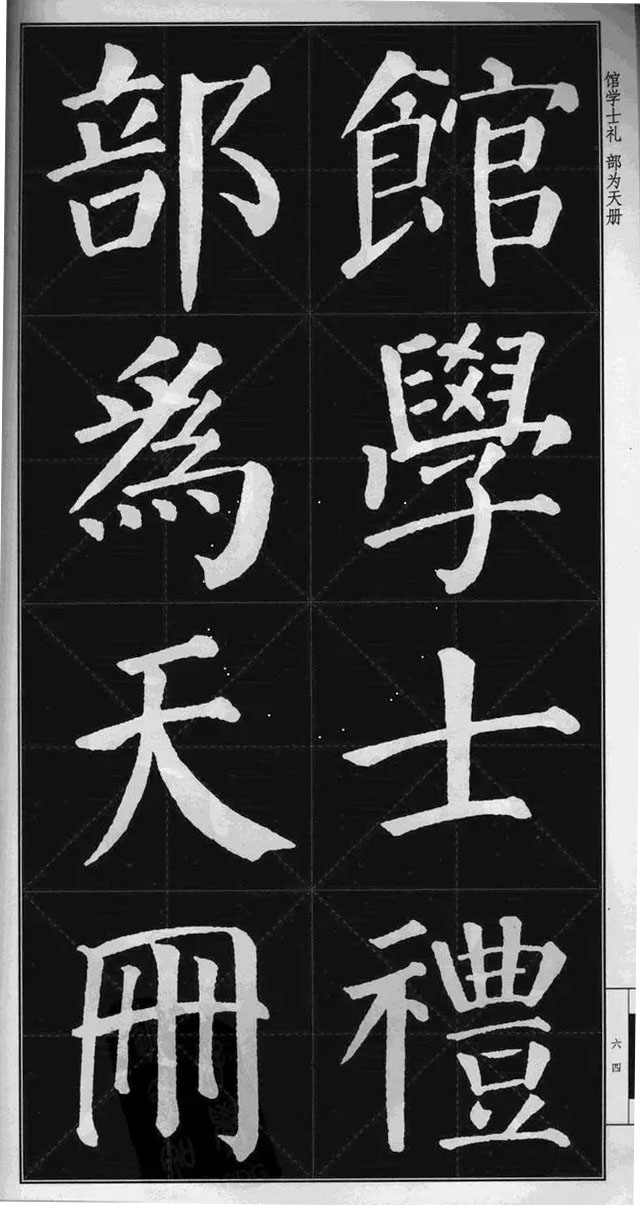 馆学士礼 部为天册
館學士禮
部為天冊
六四